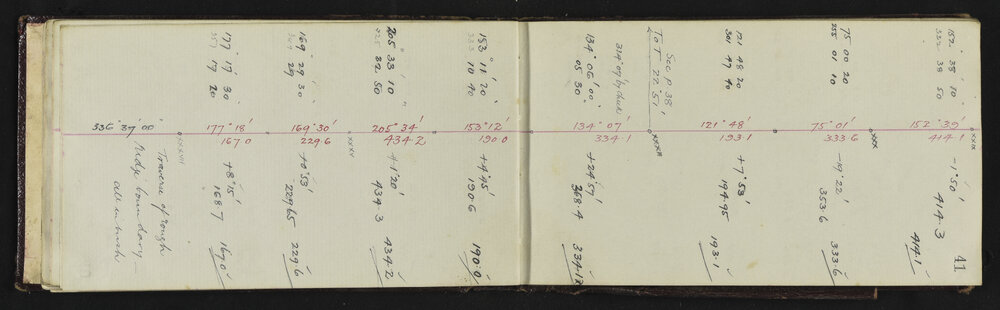 41
152° 38' 10"
332 38 50
75 00 20
255 01 10
121 48 20
301 47 40
See p 38
T.S.T 22.51'
314°07' by
134° 06' 00"
05 30"
153° 11' 20"
333 10 40
205 33 10
225 32 50
169° 29' 30"
349 29
177 17' 30"
357 17 20
336°37'00"
177°18'
169°30'
205°34'
153°12'
134°07'
121°48'
75°01'
152°39'
167.0
229.6
434.2
190.0
334.1
193.1
333.6
414.1
XXXIII
XXXII
XXX
XXIX
-1°50'
414.3
414.1
-19°22'
353.6
333.6
+7°53'
194.95
193.1
+24°57'
368.4
+4°45'
190.6
190.0
+1°20'
434.3
434.2
+0°53'
229.65
229.6
+8°15'
168.7
167.0
Traverse of rough
Ridge boundary
all in bush